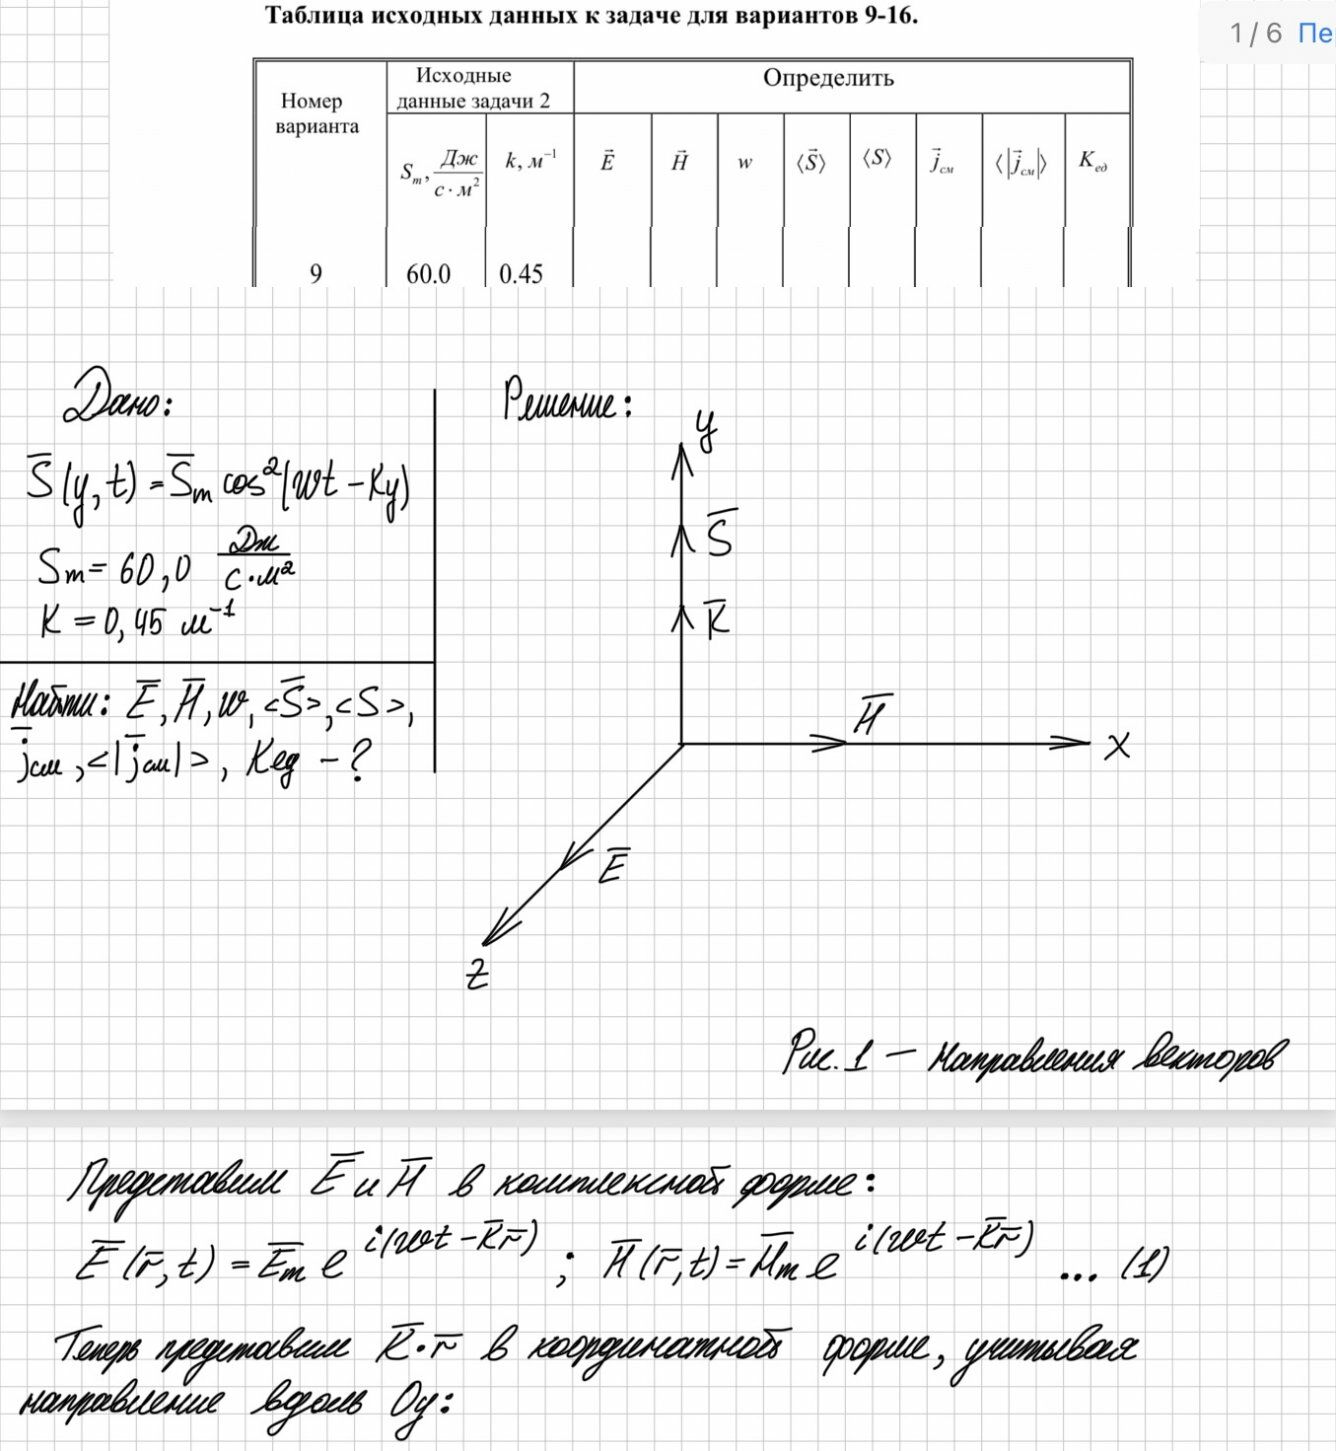 Таблица исходных данных к задаче для вариантов 9-16.
1 / 6 Пе
Номер варианта
Исходные данные задачи 2
Определить
Sₘ, Дж/(с·м²)
k, м⁻¹
E⃗
H⃗
w
⟨S⃗⟩
⟨S⟩
j⃗см
⟨|j⃗см|⟩
Kед
9 60.0 0.45
Дано:
S̅(y,t) = S̅m cos²(wt - Ky)
Sm = 60,0 Дж/(с·м²)
K = 0,45 м⁻¹
Найти: E̅, H̅, w, <S̅>, <S>,
j̅см, <|j̅см|>, Kед - ?
Решение:
y
S̅
K̅
H̅
x
E̅
z
Рис. 1 — Направления векторов
Представим E̅ и H̅ в комплексной форме:
E̅(r̅,t) = E̅m e^i(wt - K̅r̅) ; H̅(r̅,t) = H̅m e^i(wt - K̅r̅) ... (1)
Теперь представим K̅·r̅ в координатной форме, учитывая
направление вдоль Oy: